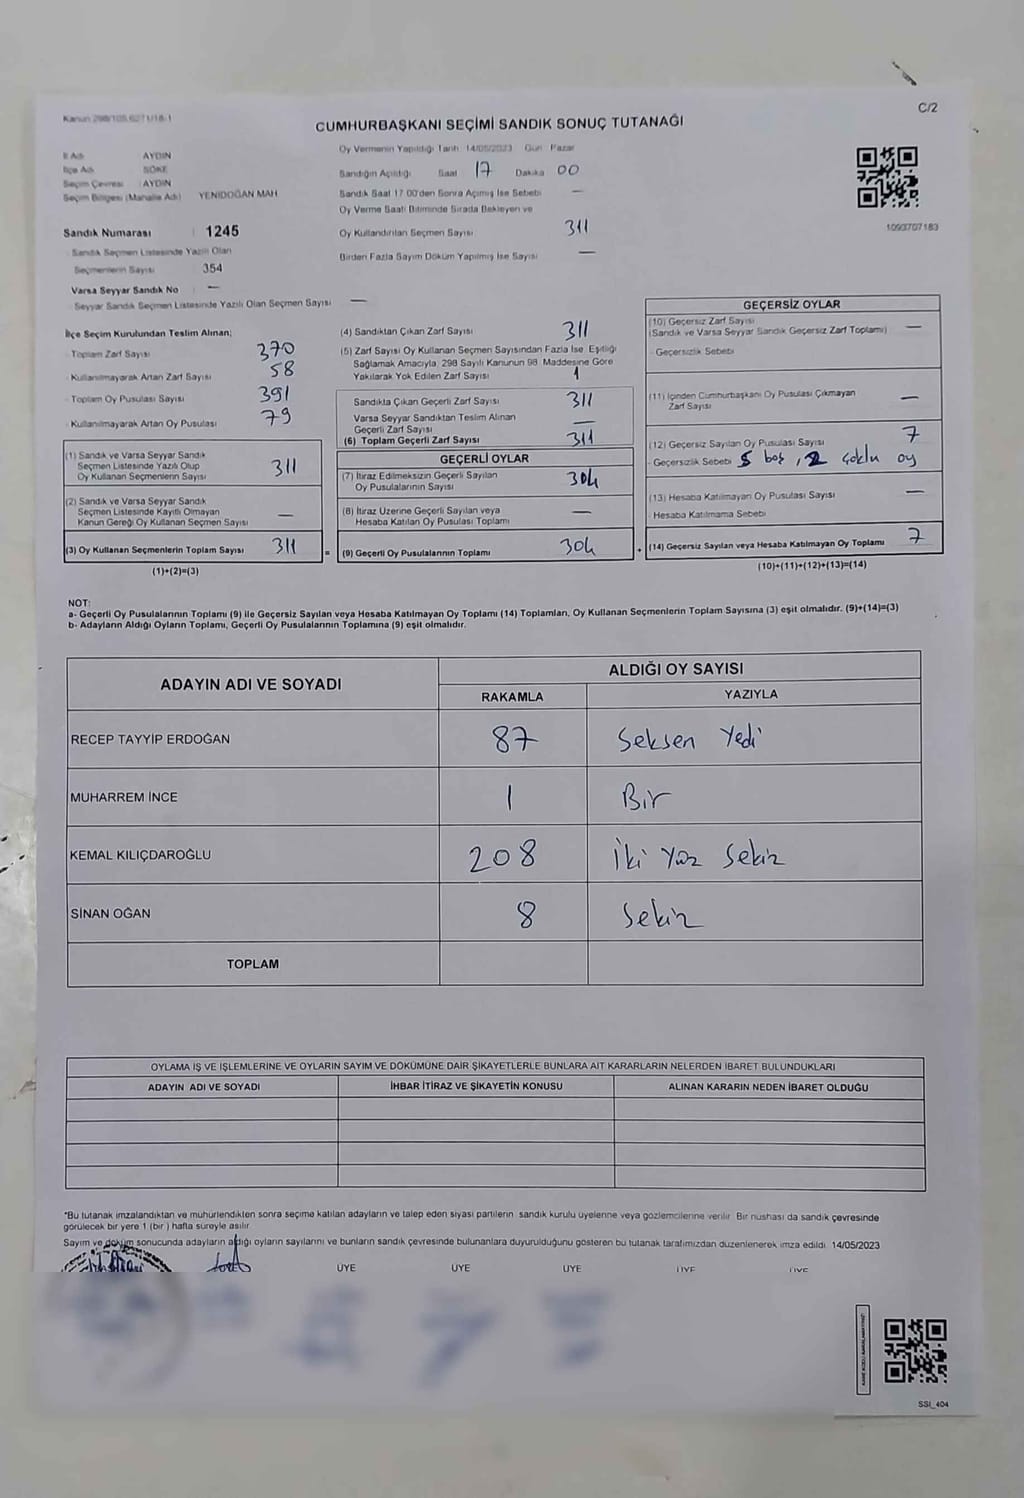 C/2
Kanun 298/105,6271/18-1
CUMHURBAŞKANI SEÇİMİ SANDIK SONUÇ TUTANAĞI
İl Adı AYDIN
İlçe Adı SÖKE
Seçim Çevresi AYDIN
Seçim Bölgesi (Mahalle Adı) YENİDOĞAN MAH
Sandık Numarası : 1245
- Sandık Seçmen Listesinde Yazılı Olan
Seçmenlerin Sayısı 354
Varsa Seyyar Sandık No : —
- Seyyar Sandık Seçmen Listesinde Yazılı Olan Seçmen Sayısı —
Oy Vermenin Yapıldığı Tarih 14/05/2023 Gün Pazar
Sandığın Açıldığı Saat 17 Dakika 00
Sandık Saat 17.00'den Sonra Açılmış İse Sebebi —
Oy Verme Saati Bitiminde Sırada Bekleyen ve
Oy Kullandırılan Seçmen Sayısı 311
Birden Fazla Sayım Döküm Yapılmış İse Sayısı —
1093707183
İlçe Seçim Kurulundan Teslim Alınan;
- Toplam Zarf Sayısı 370
- Kullanılmayarak Artan Zarf Sayısı 58
- Toplam Oy Pusulası Sayısı 391
- Kullanılmayarak Artan Oy Pusulası 79
(1) Sandık ve Varsa Seyyar Sandık
Seçmen Listesinde Yazılı Olup
Oy Kullanan Seçmenlerin Sayısı 311
(2) Sandık ve Varsa Seyyar Sandık
Seçmen Listesinde Kayıtlı Olmayan
Kanun Gereği Oy Kullanan Seçmen Sayısı —
(3) Oy Kullanan Seçmenlerin Toplam Sayısı 311
(1)+(2)=(3)
(4) Sandıktan Çıkan Zarf Sayısı 311
(5) Zarf Sayısı Oy Kullanan Seçmen Sayısından Fazla İse, Eşitliği
Sağlamak Amacıyla, 298 Sayılı Kanunun 98. Maddesine Göre
Yakılarak Yok Edilen Zarf Sayısı 1
Sandıkta Çıkan Geçerli Zarf Sayısı 311
Varsa Seyyar Sandıktan Teslim Alınan
Geçerli Zarf Sayısı —
(6) Toplam Geçerli Zarf Sayısı 311
GEÇERLİ OYLAR
(7) İtiraz Edilmeksizin Geçerli Sayılan
Oy Pusulalarının Sayısı 304
(8) İtiraz Üzerine Geçerli Sayılan veya
Hesaba Katılan Oy Pusulası Toplamı —
= (9) Geçerli Oy Pusulalarının Toplamı 304
GEÇERSİZ OYLAR
(10) Geçersiz Zarf Sayısı
(Sandık ve Varsa Seyyar Sandık Geçersiz Zarf Toplamı) —
- Geçersizlik Sebebi
(11) İçinden Cumhurbaşkanı Oy Pusulası Çıkmayan
Zarf Sayısı —
(12) Geçersiz Sayılan Oy Pusulası Sayısı 7
- Geçersizlik Sebebi 5 boş, 2 çoklu oy
(13) Hesaba Katılmayan Oy Pusulası Sayısı —
- Hesaba Katılmama Sebebi
+ (14) Geçersiz Sayılan veya Hesaba Katılmayan Oy Toplamı 7
(10)+(11)+(12)+(13)=(14)
NOT:
a- Geçerli Oy Pusulalarının Toplamı (9) ile Geçersiz Sayılan veya Hesaba Katılmayan Oy Toplamı (14) Toplamları, Oy Kullanan Seçmenlerin Toplam Sayısına (3) eşit olmalıdır. (9)+(14)=(3)
b- Adayların Aldığı Oyların Toplamı, Geçerli Oy Pusulalarının Toplamına (9) eşit olmalıdır.
ADAYIN ADI VE SOYADI
ALDIĞI OY SAYISI
RAKAMLA YAZIYLA
RECEP TAYYİP ERDOĞAN 87 Seksen Yedi
MUHARREM İNCE 1 Bir
KEMAL KILIÇDAROĞLU 208 İki Yüz Sekiz
SİNAN OĞAN 8 Sekiz
TOPLAM
OYLAMA İŞ VE İŞLEMLERİNE VE OYLARIN SAYIM VE DÖKÜMÜNE DAİR ŞİKAYETLERLE BUNLARA AİT KARARLARIN NELERDEN İBARET BULUNDUKLARI
ADAYIN ADI VE SOYADI İHBAR İTİRAZ VE ŞİKAYETİN KONUSU ALINAN KARARIN NEDEN İBARET OLDUĞU
*Bu tutanak imzalandıktan ve mühürlendikten sonra seçime katılan adayların ve talep eden siyasi partilerin sandık kurulu üyelerine veya gözlemcilerine verilir. Bir nüshası da sandık çevresinde
görülecek bir yere 1 (bir) hafta süreyle asılır.
Sayım ve döküm sonucunda adayların aldığı oyların sayılarını ve bunların sandık çevresinde bulunanlara duyurulduğunu gösteren bu tutanak tarafımızdan düzenlenerek imza edildi. 14/05/2023
ÜYE ÜYE ÜYE ÜYE ÜYE
SSI_404